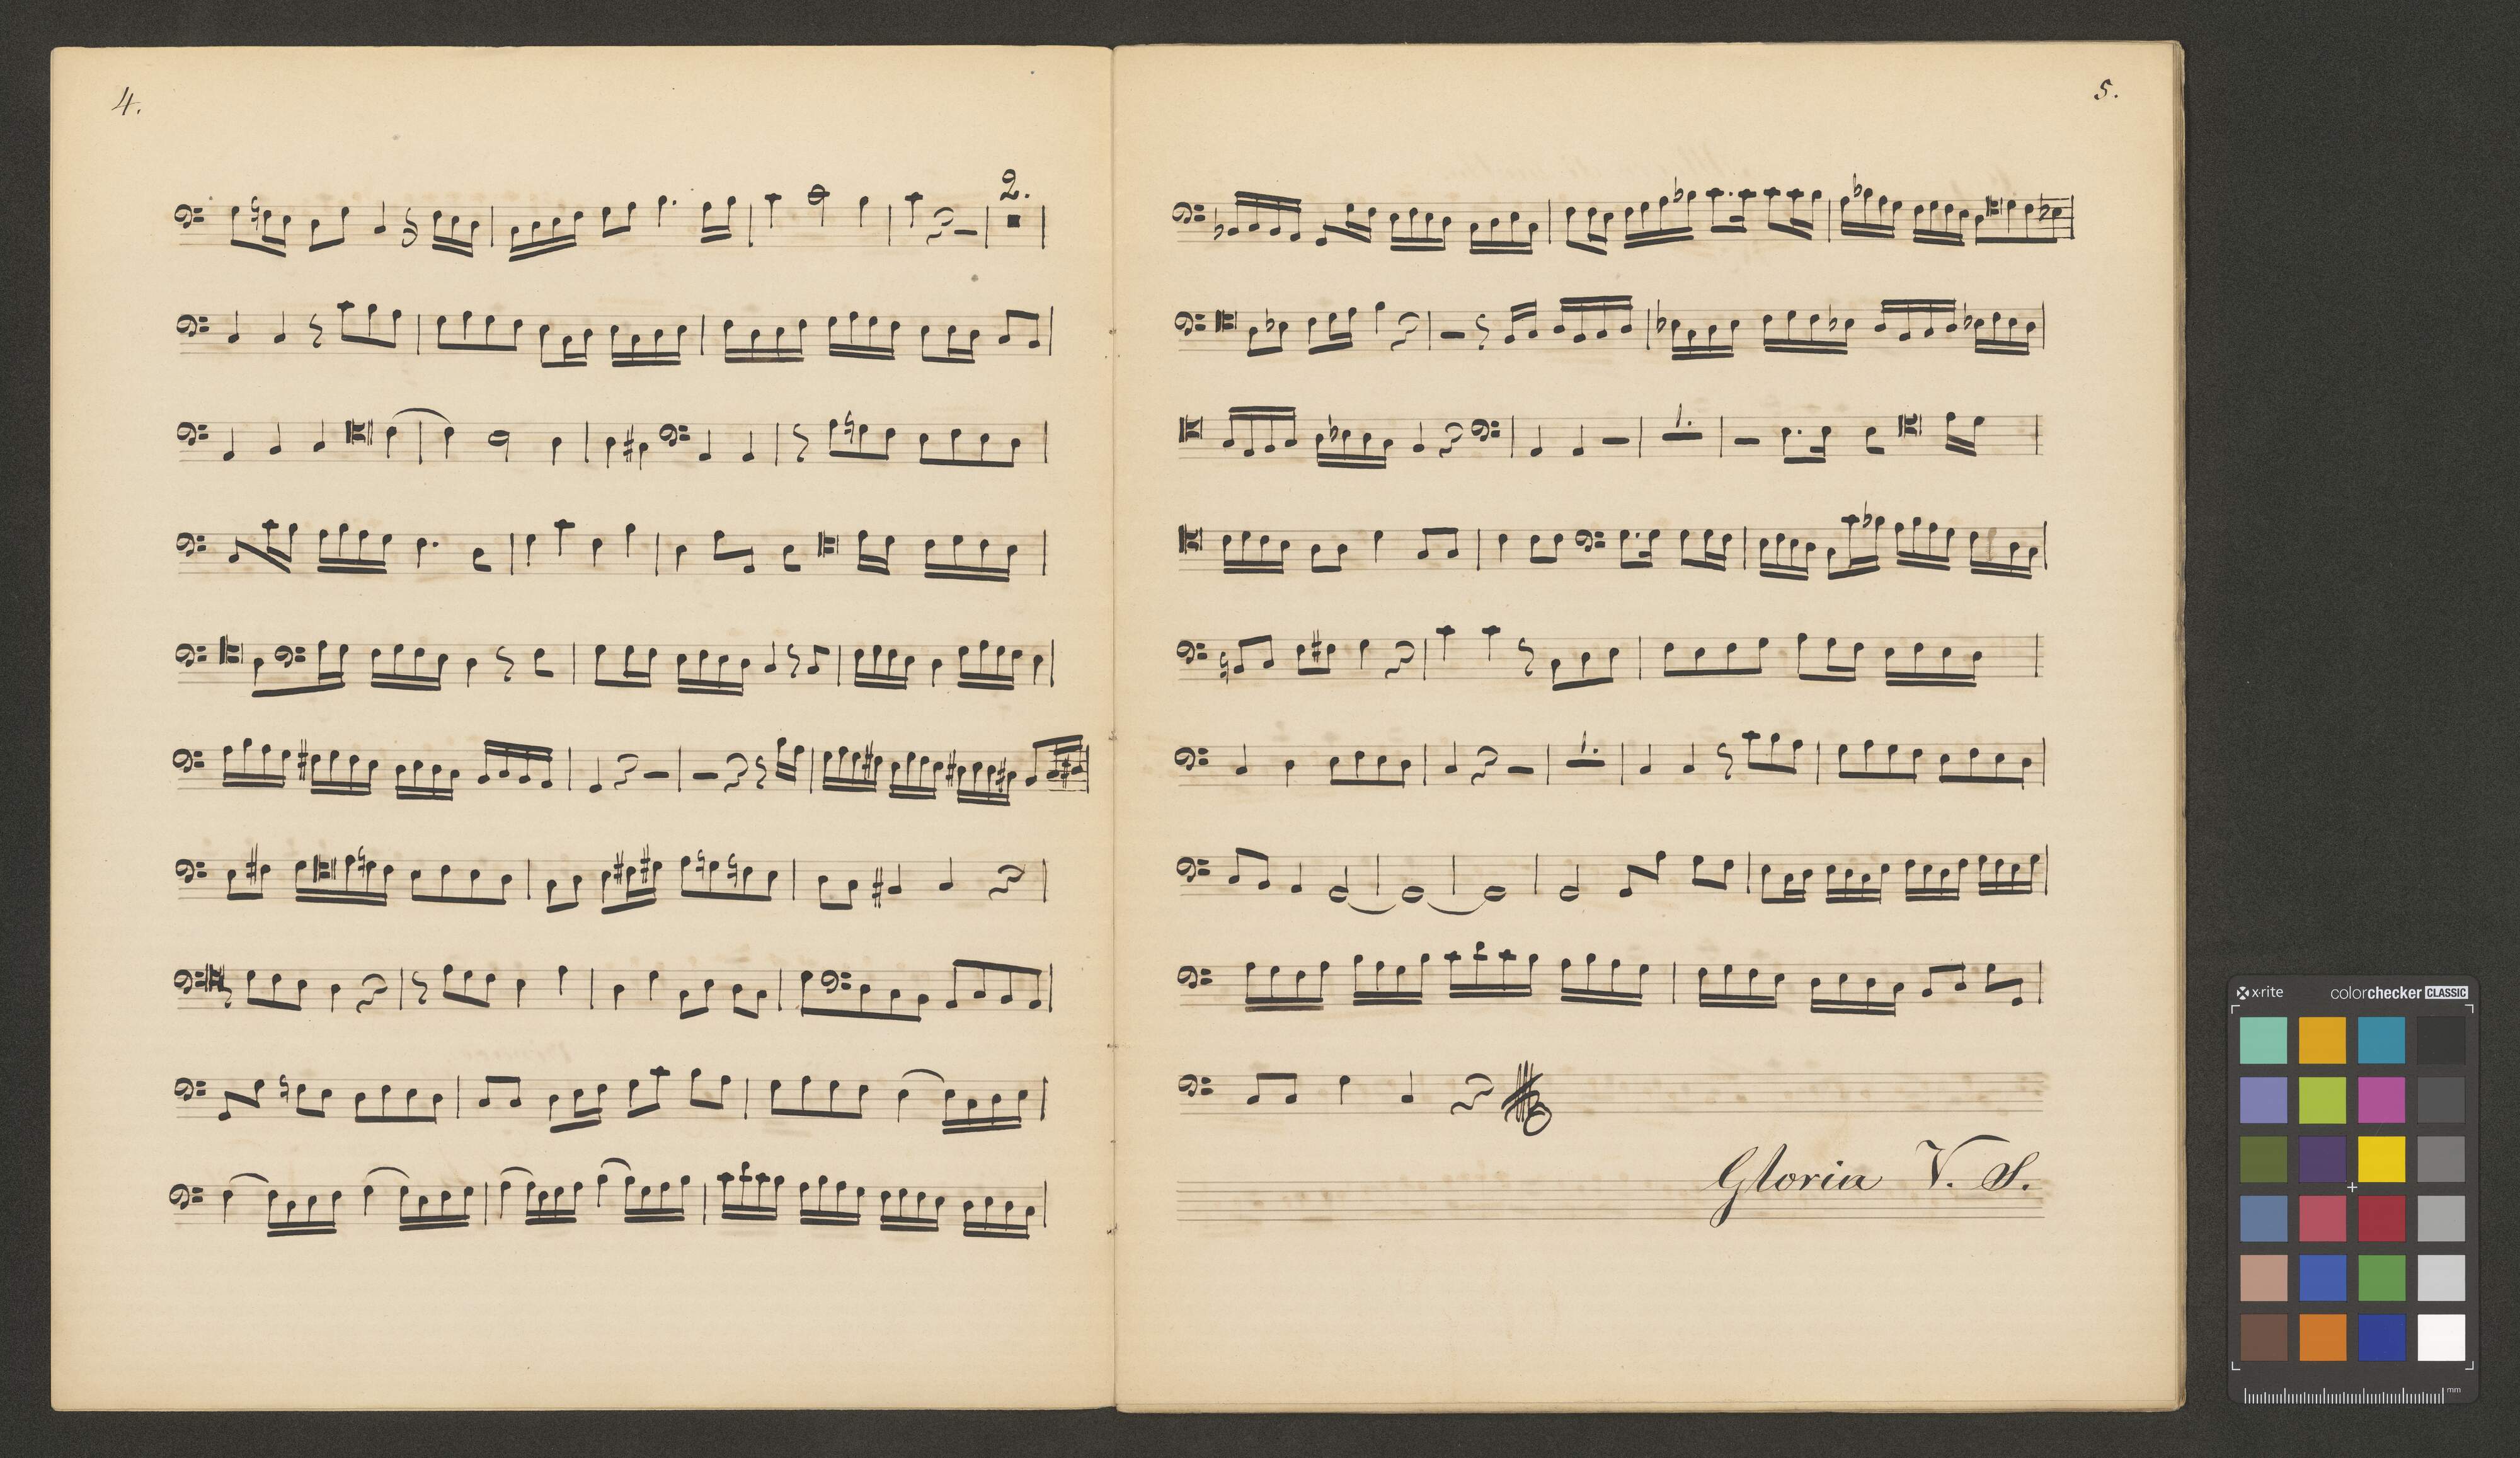 4.
2.
5.
1.
1.
Gloria V. S.
x·rite colorchecker CLASSIC
mm